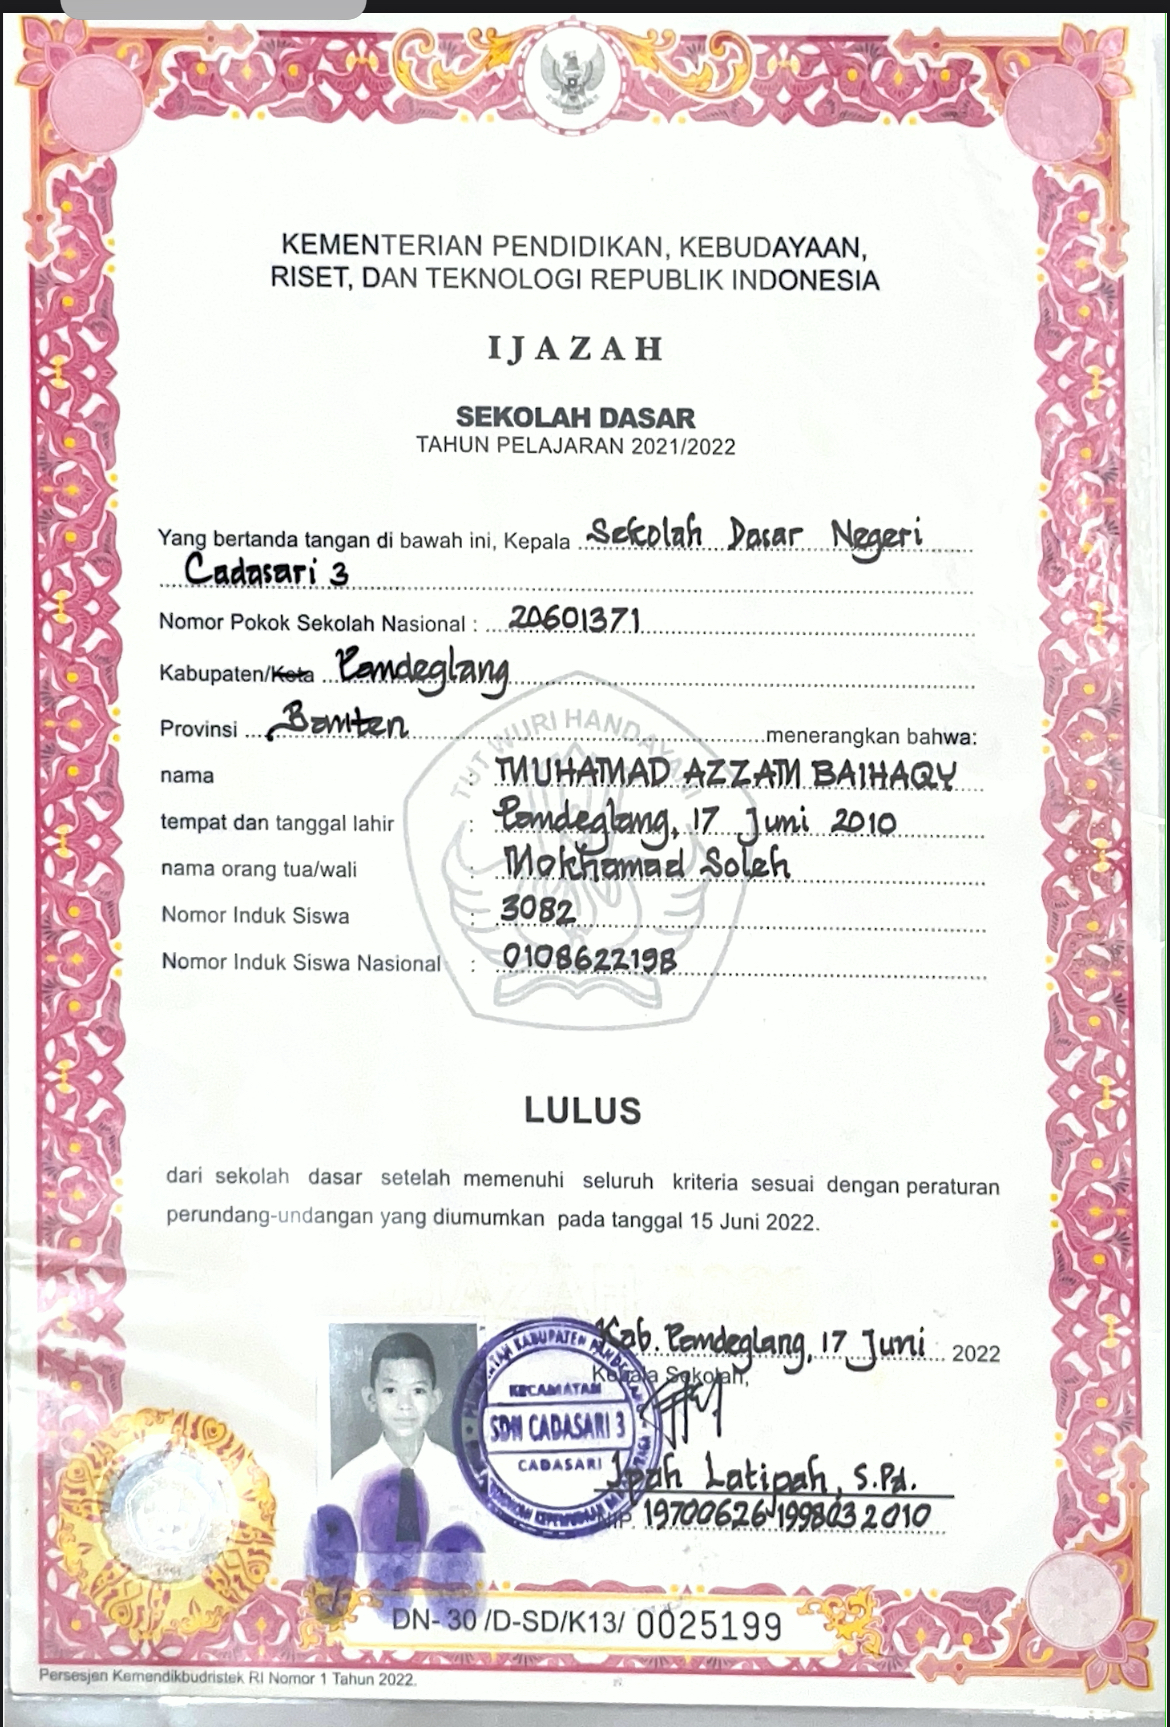 KEMENTERIAN PENDIDIKAN, KEBUDAYAAN,
RISET, DAN TEKNOLOGI REPUBLIK INDONESIA
IJAZAH
SEKOLAH DASAR
TAHUN PELAJARAN 2021/2022
Yang bertanda tangan di bawah ini, Kepala Sekolah Dasar Negeri
Cadasari 3
Nomor Pokok Sekolah Nasional : 20601371
Kabupaten/Kota Pandeglang
Provinsi Banten menerangkan bahwa:
nama : MUHAMAD AZZAM BAIHAQY
tempat dan tanggal lahir : Pandeglang, 17 Juni 2010
nama orang tua/wali : Mokhamad Soleh
Nomor Induk Siswa : 3082
Nomor Induk Siswa Nasional : 0108622198
TUT WURI HANDAYANI
LULUS
dari sekolah dasar setelah memenuhi seluruh kriteria sesuai dengan peraturan
perundang-undangan yang diumumkan pada tanggal 15 Juni 2022.
Kab. Pandeglang, 17 Juni 2022
Kepala Sekolah,
KECAMATAN
SDN CADASARI 3
CADASARI
Ipah Latipah, S.Pd.
NIP. 19700626 199803 2010
DN- 30 /D-SD/K13/ 0025199
Persesjen Kemendikbudristek RI Nomor 1 Tahun 2022.